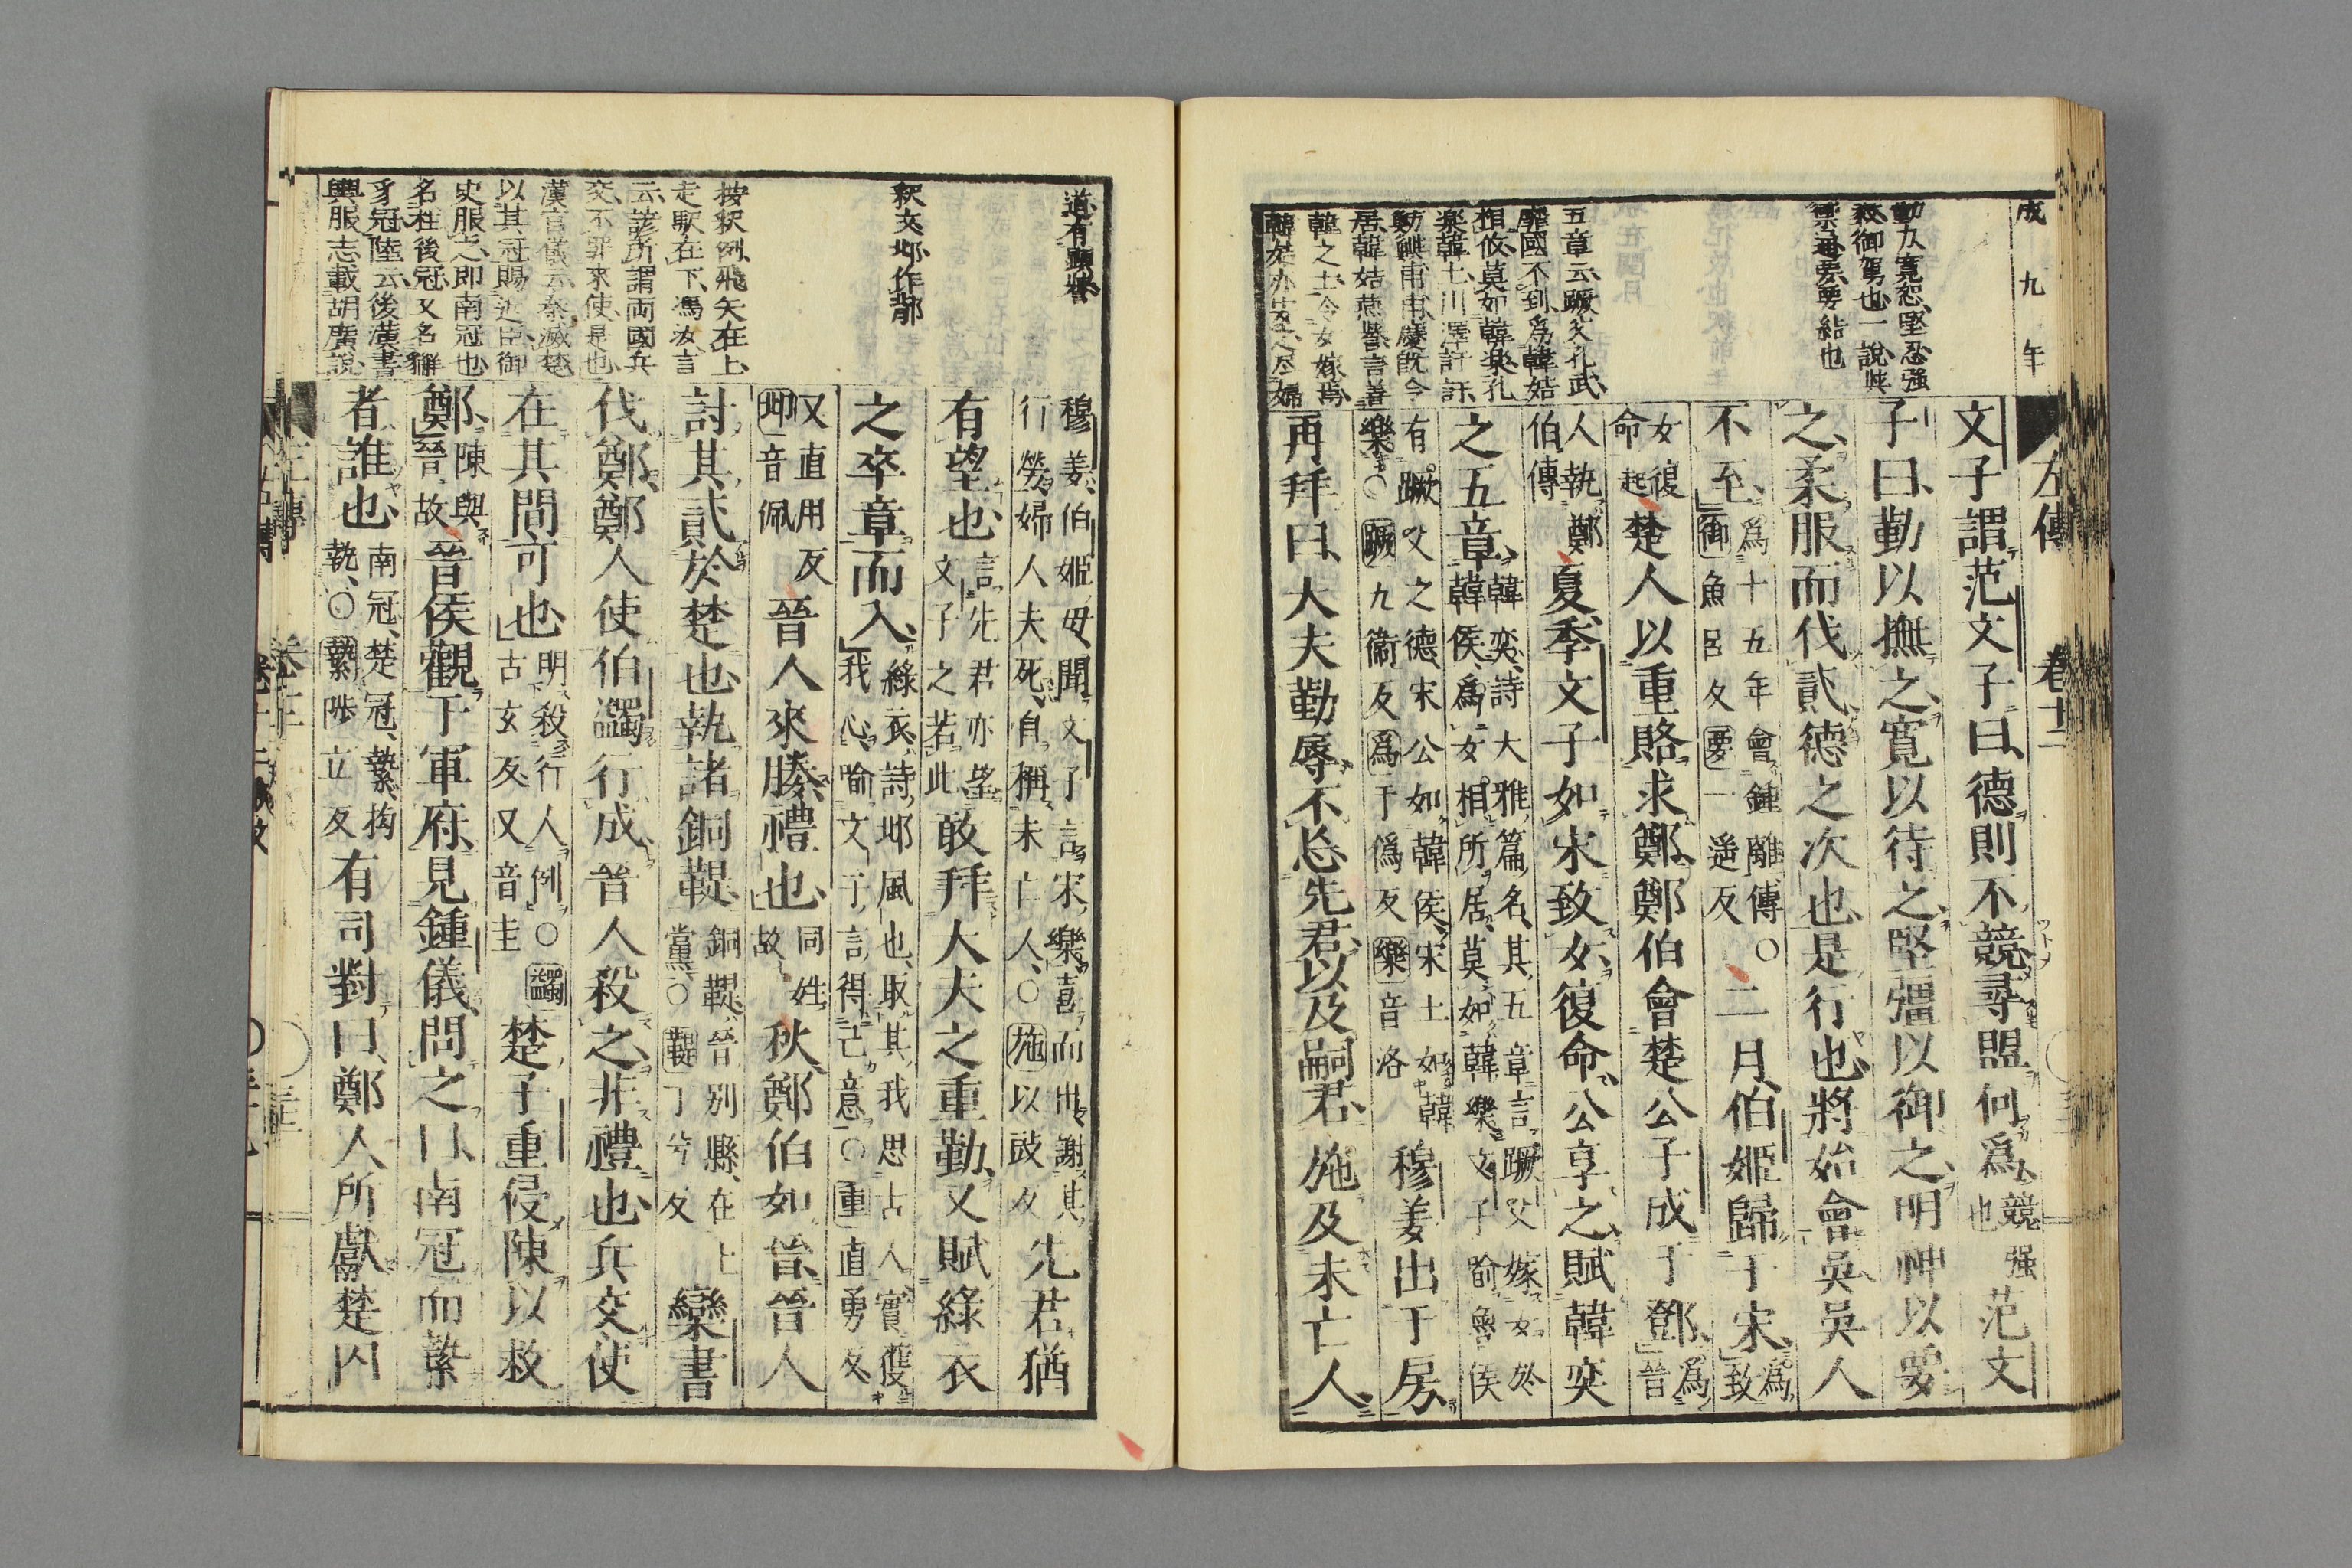 成九年
左傳
勤力寬恕堅忍強
毅御駕也一說與
禦通要要結也
五章云蹶父孔武
靡國不到爲韓姞
相攸莫如韓樂孔
樂韓土川澤訏訏
魴鱮甫甫慶既令
居韓姞燕譽言善
韓之土令女嫁焉
文子謂范文子曰德則不競尋盟何爲競强也范文
子曰勤以撫之寬以待之堅彊以御之明神以要
之柔服而伐貳德之次也是行也將始會吳吳人
不至爲十五年會鍾離傳○御魚呂反要一遥反二月伯姬歸于宋爲致
女復命起楚人以重賂求鄭鄭伯會楚公子成于鄧爲晉
人執鄭伯傳夏季文子如宋致女復命公享之賦韓奕
之五章韓奕詩大雅篇名其五章言蹶父嫁女於韓侯爲女相所居莫如韓樂文子喻魯侯
有蹶父之德宋公如韓侯宋土如韓樂○蹶九衞反爲于僞反樂音洛穆姜出于房
再拜曰大夫勤辱不忘先君以及嗣君施及未亡人
釈文邶作鄁
按釈例飛矢在上
走駅在下馮汝言
云諺所謂両國兵
交不罪來使是也
漢官儀云秦滅楚
以其冠賜近臣御
史服之即南冠也
名柱後冠又名獬
豸冠陸云後漢書
輿服志載胡廣說
穆姜伯姬母聞文子言宋樂喜而出謝其行勞婦人夫死自稱未亡人○施以豉反先君猶
有望也言先君亦望文子之若此敢拜大夫之重勤又賦綠衣
之卒章而入綠衣詩邶風也取其我思古人實獲我心喻文子言得己意○重直勇反
又直用反邶音佩晉人來媵禮也同姓故秋鄭伯如晉晉人
討其貳於楚也執諸銅鞮銅鞮晉別縣在上黨○鞮丁兮反欒書
伐鄭鄭人使伯蠲行成晉人殺之非禮也兵交使
在其間可也明殺行人例○蠲古玄反又音圭楚子重侵陳以救
鄭陳與晉故晉侯觀于軍府見鍾儀問之曰南冠而縶
者誰也南冠楚冠縶拘執○縶陟立反有司對曰鄭人所獻楚囚